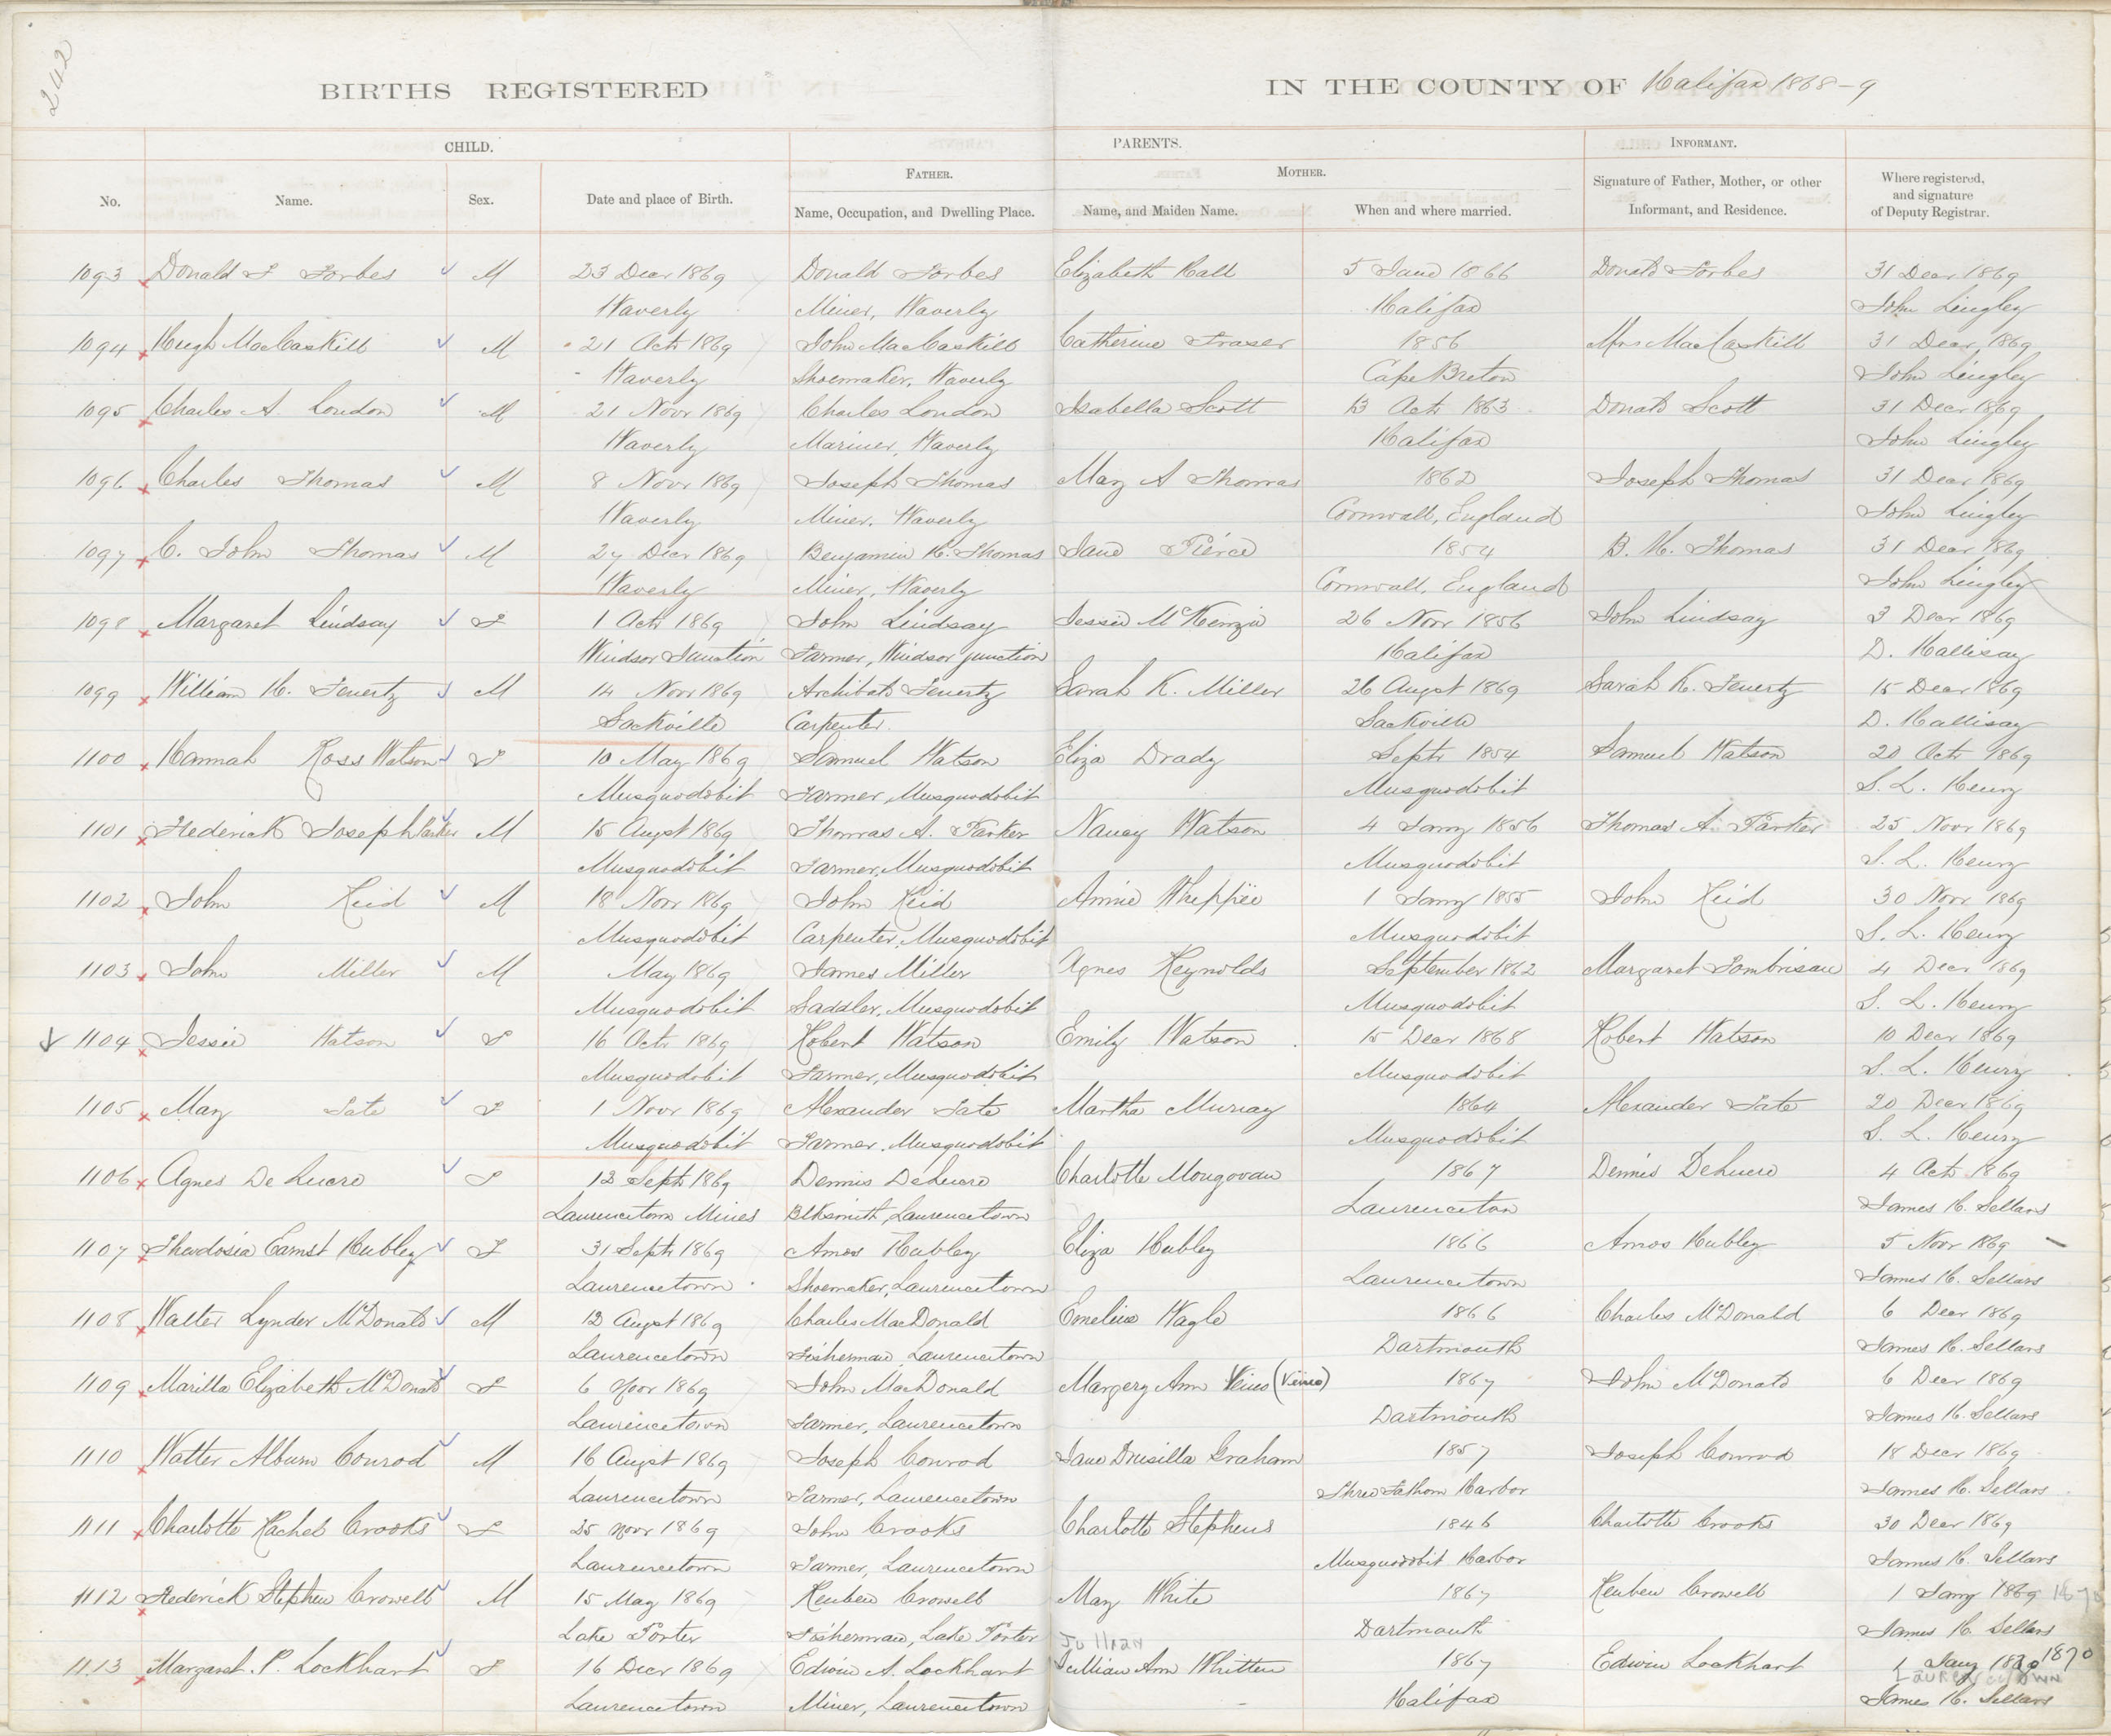 242
BIRTHS REGISTERED IN THE COUNTY OF Halifax 1868-9
CHILD. PARENTS. INFORMANT.
FATHER. MOTHER.
No. Name. Sex. Date and place of Birth. Name, Occupation, and Dwelling Place. Name, and Maiden Name. When and where married. Signature of Father, Mother, or other Informant, and Residence. Where registered, and signature of Deputy Registrar.
1093 Donald F Forbes M 23 Decr 1869 Donald Forbes Elizabeth Hall 5 June 1866 Donald Forbes 31 Decr 1869
Waverly Miner, Waverly Halifax John Lingley
1094 Hugh MacCaskill M 21 Octr 1869 John MacCaskill Catherine Fraser 1856 Mrs MacCaskill 31 Decr 1869
Waverly Shoemaker, Waverly Cape Breton John Lingley
1095 Charles A. London M 21 Novr 1869 Charles London Isabella Scott 13 Octr 1863 Donald Scott 31 Decr 1869
Waverly Mariner, Waverly Halifax John Lingley
1096 Charles Thomas M 8 Novr 1869 Joseph Thomas Mary A Thomas 1862 Joseph Thomas 31 Decr 1869
Waverly Miner, Waverly Cornwall, England John Lingley
1097 C. John Thomas M 27 Decr 1869 Benjamin H. Thomas Jane Pierce 1854 B. H. Thomas 31 Decr 1869
Waverly Miner, Waverly Cornwall, England John Lingley
1098 Margaret Lindsay F 1 Octr 1869 John Lindsay Jessie McKenzie 26 Novr 1856 John Lindsay 3 Decr 1869
Windsor Junction Farmer, Windsor junction Halifax D. Hallisay
1099 William H. Fenerty M 14 Novr 1869 Archibald Fenerty Sarah K. Miller 26 Augst 1869 Sarah K. Fenerty 15 Decr 1869
Sackville Carpenter Sackville D. Hallisay
1100 Hannah Ross Watson F 10 May 1869 Samuel Watson Eliza Drady Septr 1854 Samuel Watson 20 Octr 1869
Musquodobit Farmer, Musquodobit Musquodobit S. L. Henry
1101 Frederick Joseph Parker M 15 Augst 1869 Thomas A. Parker Nancy Watson 4 Jany 1856 Thomas A. Parker 25 Novr 1869
Musquodobit Farmer, Musquodobit Musquodobit S. L. Henry
1102 John Reid M 18 Novr 1869 John Reid Annie Wheppie 1 Jany 1855 John Reid 30 Novr 1869
Musquodobit Carpenter, Musquodobit Musquodobit S. L. Henry
1103 John Miller M May 1869 James Miller Agnes Reynolds September 1862 Margaret 4 Decr 1869
Musquodobit Saddler, Musquodobit Musquodobit S. L. Henry
1104 Jessie Watson F 16 Octr 1869 Robert Watson Emily Watson 15 Decr 1868 Robert Watson 10 Decr 1869
Musquodobit Farmer, Musquodobit Musquodobit S. L. Henry
1105 Mary Tate F 1 Novr 1869 Alexander Tate Martha Murray 1864 Alexander Tate 20 Decr 1869
Musquodobit Farmer, Musquodobit Musquodobit S. L. Henry
1106 Agnes De Luero F 12 Septr 1869 Dennis DeLuero Charlotte Mongovan 1867 Dennis DeLuero 4 Octr 1869
Laurencetown Mines Blksmith, Laurencetown Laurenceton James H. Sellars
1107 Theodosia Earnst Hubley F 31 Septr 1869 Amos Hubley Eliza Hubley 1866 Amos Hubley 5 Novr 1869
Laurencetown Shoemaker, Laurencetown Laurencetown James H. Sellars
1108 Walter Lynder McDonald M 12 Augst 1869 Charles MacDonald Emeline Nagle 1866 Charles McDonald 6 Decr 1869
Laurencetown Fisherman, Laurencetown Dartmouth James H. Sellars
1109 Marilla Elizabeth McDonald F 6 Novr 1869 John MacDonald Margery Ann Veino (Veino) 1867 John McDonald 6 Decr 1869
Laurencetown Farmer, Laurencetown Dartmouth James H. Sellars
1110 Walter Album Conrod M 16 Augst 1869 Joseph Conrod Jane Drusilla Graham 1857 Joseph Conrod 18 Decr 1869
Laurencetown Farmer, Laurencetown Three Fathom Harbor James H. Sellars
1111 Charlotte Rachel Crooks F 25 Novr 1869 John Crooks Charlotte Stephens 1846 Charlotte Crooks 30 Decr 1869
Laurencetown Farmer, Laurencetown Musquodobit Harbor James H. Sellars
1112 Frederick Stephen Crowell M 15 May 1869 Reuben Crowell Mary White 1867 Reuben Crowell 1 Jany 1869 1870
Lake Porter Fisherman, Lake Porter Dartmouth James H. Sellars
Jullian
1113 Margaret. P. Lockhart F 16 Decr 1869 Edwin A. Lockhart Jullian Ann Whitten 1867 Edwin Lockhart 1 Jany 1870 1870
LAURENCETOWN
Laurencetown Miner, Laurencetown Halifax James H. Sellars